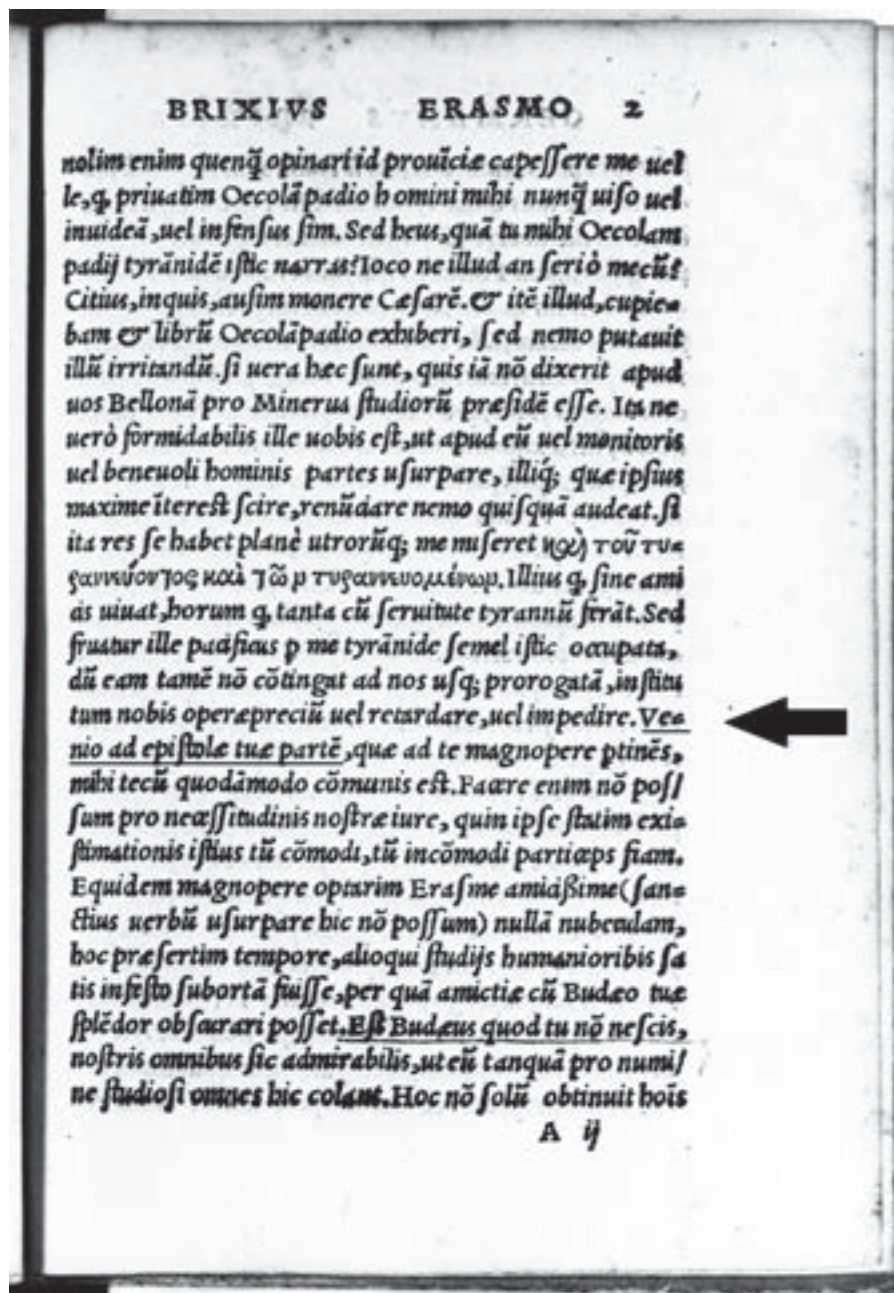 BRIXIVS ERASMO 2
nolim enim quenq̃ opinari id prouĩciæ capeſſere me uel
le, ꝙ priuatim Oecolãpadio homini mihi nunq̃ uiſo uel
inuideã, uel infenſus ſim. Sed heus, quã tu mihi Oecolam
padij tyrãnidẽ iſtic narras? Ioco ne illud an ſeriò mecũ?
Citius, inquis, auſim monere Cæſarẽ. & itẽ illud, cupie-
bam & librũ Oecolãpadio exhiberi, ſed nemo putauit
illũ irritandũ. ſi uera hæc ſunt, quis iã nõ dixerit apud
uos Bellonã pro Minerua ſtudiorũ præſidẽ eſſe. Ita ne
uerò formidabilis ille uobis eſt, ut apud eũ uel monitoris
uel beneuoli hominis partes uſurpare, illiq́; quæ ipſius
maxime ĩtereſt ſcire, renũdare nemo quiſquã audeat. ſi
ita res ſe habet planè utrorũq; me miſeret καὶ τοῦ τυ-
ραννεύοντος καὶ τῶν τυραννευομένων. Illius ꝙ ſine ami
cis uiuat, horum ꝙ tanta cũ ſeruitute tyrannũ ferãt. Sed
fruatur ille pacificus ꝑ me tyrãnide ſemel iſtic occupata,
dũ eam tamẽ nõ cõtingat ad nos uſq; prorogatã, inſtitu
tum nobis operæpreciũ uel retardare, uel impedire. Ve-
nio ad epiſtolæ tuæ partẽ, quæ ad te magnopere ꝑtinẽs,
mihi tecũ quodãmodo cõmunis eſt. Facere enim nõ poſ/
ſum pro neceſſitudinis noſtræ iure, quin ipſe ſtatim exi-
ſtimationis iſtius tũ cõmodi, tũ incõmodi particeps fiam.
Equidem magnopere optarim Eraſme amiciſſime (ſan-
ctius uerbũ uſurpare hic nõ poſſum) nullã nubeculam,
hoc præſertim tempore, alioqui ſtudijs humanioribis ſa
tis infeſto ſubortã fuiſſe, per quã amictiæ cũ Budæo tuæ
ſplẽdor obſcurari poſſet. Eſt Budæus quod tu nõ neſcis,
noſtris omnibus ſic admirabilis, ut eũ tanquã pro numi/
ne ſtudioſi omnes hic colant. Hoc nõ ſolũ obtinuit hoĩs
A ij